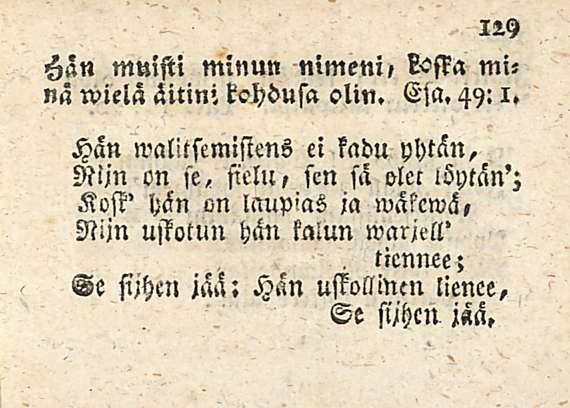 129
Hän muisti minun nimeni, koska mi⸗
nä wielä äitini kohdusa olin. Esa. 49: 1.
Hän walitsemistens ei kadu yhtän,
Nijn on se, sielu, sen sä olet löytän';
Kosk' hän on laupias ja wäkewä,
Nijn uskotun hän kalun warjell'
tiennee;
Se sijhen jää: Hän uskollinen lienee,
Se sijhen jää.